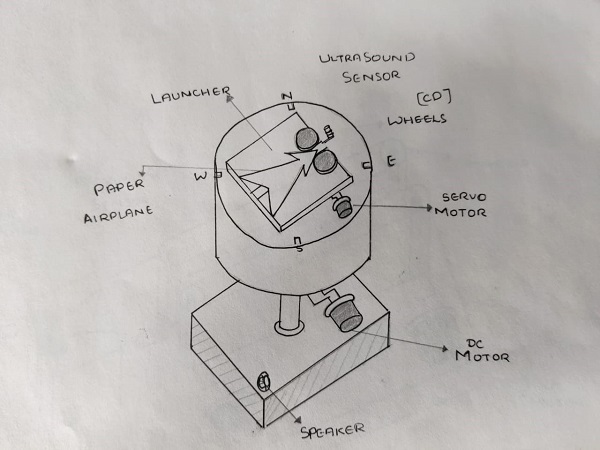 ULTRASOUND
SENSOR
LAUNCHER
N
[CD]
WHEELS
W
E
PAPER
AIRPLANE
SERVO
MOTOR
S
DC
MOTOR
SPEAKER